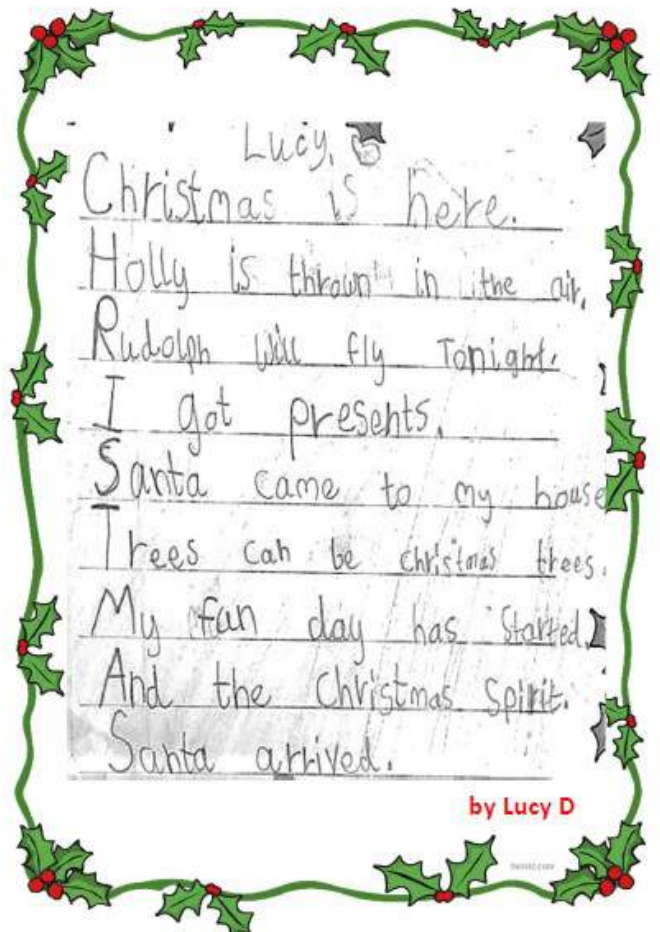 Lucy.
Christmas is here.
Holly is thrown in the air.
Rudolph will fly Tonight.
I got presents.
Santa came to my house
Trees can be christmas trees.
My fun day has started.
And the christmas spirit.
Santa arrived.
by Lucy D
twinkl.com